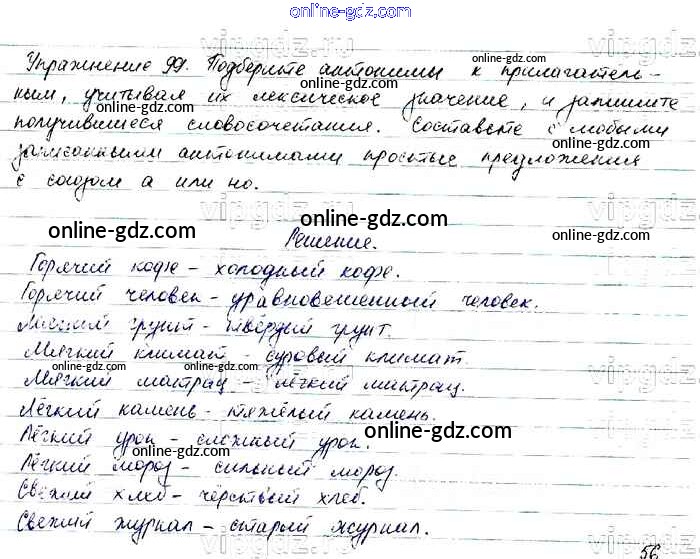 online-gdz.com
Упражнение 99. Подберите антонимы к прилагатель-
ным, учитывая их лексическое значение, и запишите
получившиеся словосочетания. Составьте с любыми
записанными антонимами простые предложения
с союзом а или но.
online-gdz.com
online-gdz.com
online-gdz.com
Решение.
Горячий кофе - холодный кофе.
Горячий человек - уравновешенный человек.
Мягкий грунт - твёрдый грунт.
Мягкий климат - суровый климат.
Мягкий матрац - лёгкий матрац.
Лёгкий камень - тяжёлый камень.
Лёгкий урок - сложный урок.
Лёгкий мороз - сильный мороз.
Свежий хлеб - чёрствый хлеб.
Свежий журнал - старый журнал.
online-gdz.com
online-gdz.com
online-gdz.com
online-gdz.com
online-gdz.com
56